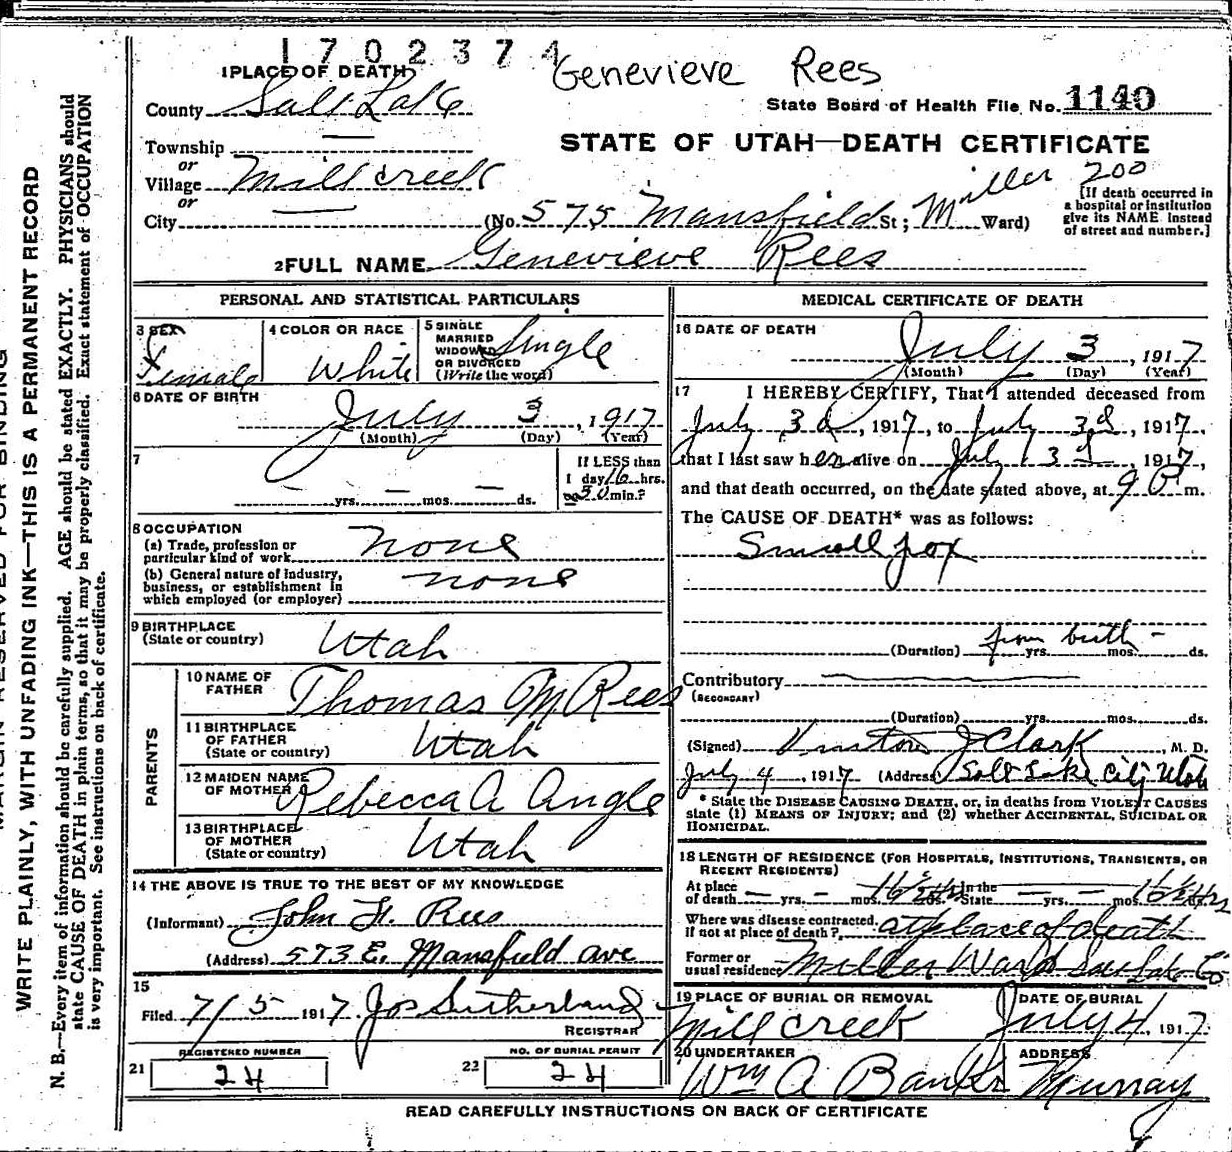 1702374
Genevieve Rees
1 PLACE OF DEATH
County Salt Lake
State Board of Health File No. 1140
Township —
or
Village Mill creek
or
City —
STATE OF UTAH—DEATH CERTIFICATE
200
(No. 575 Mansfield St; Miller Ward)
[If death occurred in
a hospital or institution
give its NAME instead
of street and number.]
2 FULL NAME Genevieve Rees
PERSONAL AND STATISTICAL PARTICULARS
3 SEX Female
4 COLOR OR RACE White
5 SINGLE
MARRIED
WIDOWED
OR DIVORCED
(Write the word) Single
6 DATE OF BIRTH
July 3, 1917
(Month) (Day) (Year)
7
— yrs. — mos. — ds.
If LESS than
1 day 16 hrs.
or 30 min.?
8 OCCUPATION
(a) Trade, profession or
particular kind of work none
(b) General nature of industry,
business, or establishment in
which employed (or employer) none
9 BIRTHPLACE
(State or country) Utah
PARENTS
10 NAME OF
FATHER Thomas M Rees
11 BIRTHPLACE
OF FATHER
(State or country) Utah
12 MAIDEN NAME
OF MOTHER Rebecca A Angle
13 BIRTHPLACE
OF MOTHER
(State or country) Utah
14 THE ABOVE IS TRUE TO THE BEST OF MY KNOWLEDGE
(Informant) John H. Rees
(Address) 573 E. Mansfield ave
15
Filed 7/5 1917 Jos Sutherland
REGISTRAR
REGISTERED NUMBER
21 24
NO. OF BURIAL PERMIT
22 24
MEDICAL CERTIFICATE OF DEATH
16 DATE OF DEATH
July 3, 1917
(Month) (Day) (Year)
17 I HEREBY CERTIFY, That I attended deceased from
July 3d, 1917, to July 3d, 1917,
that I last saw her alive on July 3d, 1917,
and that death occurred, on the date stated above, at 9 P m.
The CAUSE OF DEATH* was as follows:
Small pox
(Duration) from birth - yrs. mos. ds.
Contributory —
(SECONDARY)
(Duration) yrs. mos. ds.
(Signed) J Clark, M. D.
July 4, 1917 (Address) Salt Lake City Utah
* State the DISEASE CAUSING DEATH, or, in deaths from VIOLENT CAUSES
state (1) MEANS OF INJURY; and (2) whether ACCIDENTAL, SUICIDAL OR
HOMICIDAL.
18 LENGTH OF RESIDENCE (FOR HOSPITALS, INSTITUTIONS, TRANSIENTS, OR
RECENT RESIDENTS)
At place
of death — yrs. - mos. 16½ hrs In the
State — yrs. — mos. 16½ hrs
Where was disease contracted,
if not at place of death? at place of death
Former or
usual residence Miller Ward Salt Lake Co
19 PLACE OF BURIAL OR REMOVAL
Mill creek
DATE OF BURIAL
July 4, 1917
20 UNDERTAKER
Wm A Banks
ADDRESS
Murray
READ CAREFULLY INSTRUCTIONS ON BACK OF CERTIFICATE
MARGIN RESERVED FOR BINDING
WRITE PLAINLY, WITH UNFADING INK—THIS IS A PERMANENT RECORD
N. B.—Every item of information should be carefully supplied. AGE should be stated EXACTLY. PHYSICIANS should
state CAUSE OF DEATH in plain terms, so that it may be properly classified. Exact statement of OCCUPATION
is very important. See instructions on back of certificate.